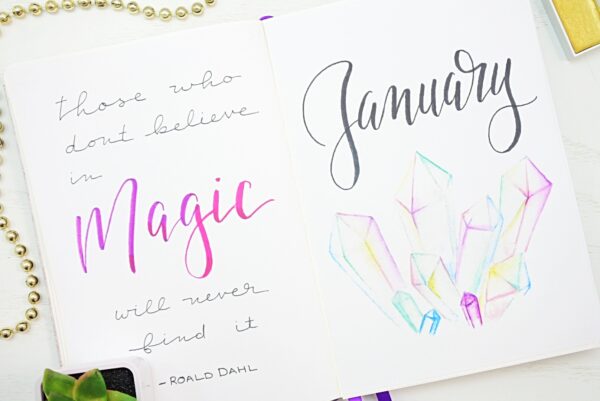 those who
dont believe
in
Magic
will never
find it
- ROALD DAHL
January